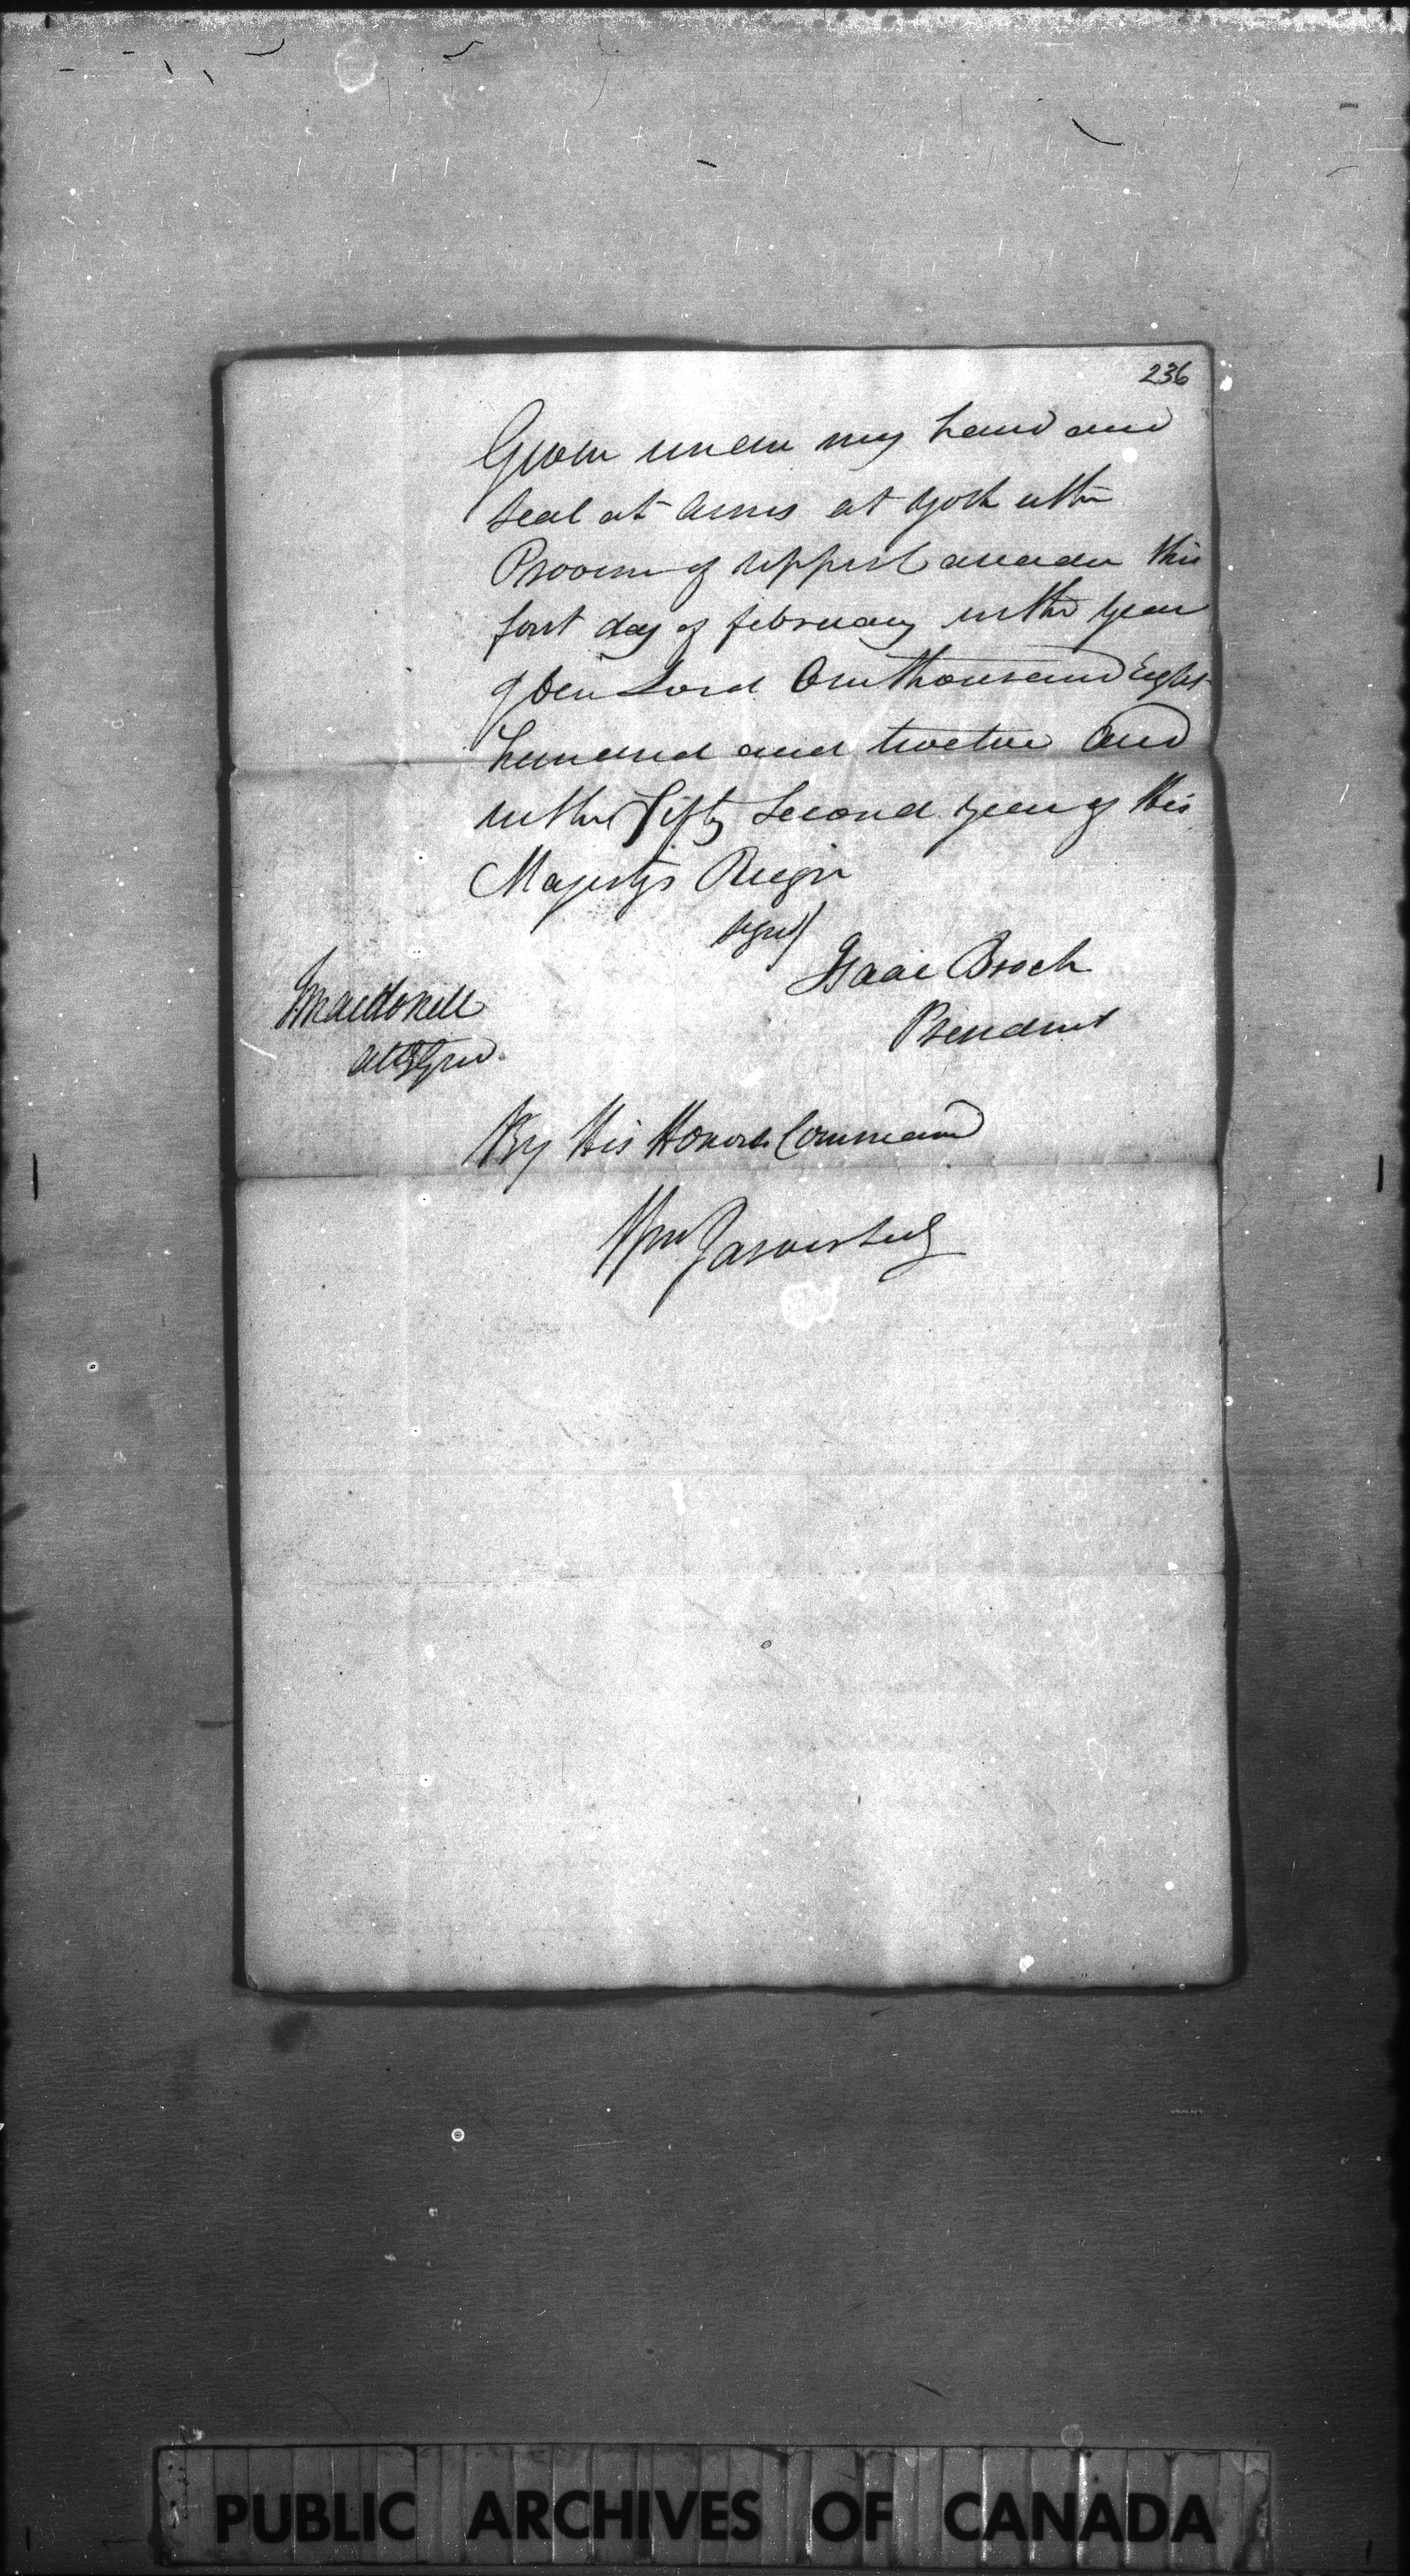 236
Given under my hand and
Seal at Arms at York in the
Province of Upper Canada this
first day of February in the year
of Our Lord One thousand Eight
hundred and twelve and
in the Fifty Second year of His
Majesty's Reign
Signed/
Isaac Brock
President
J Macdonell
Atty Gen
By His Honors Command
Wm Jarvis Secy
PUBLIC ARCHIVES OF CANADA